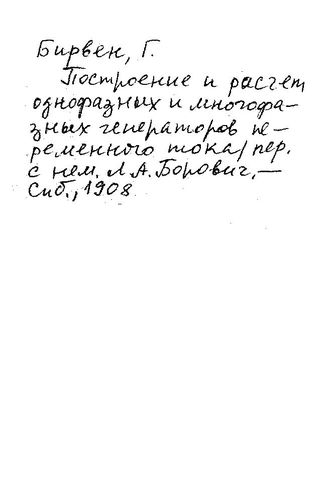 Бирвен, Г.
Построение и расчет
однофазных и многофа-
зных генераторов пе-
ременного тока/ пер.
с нем. Л.А. Борович, —
Спб., 1908